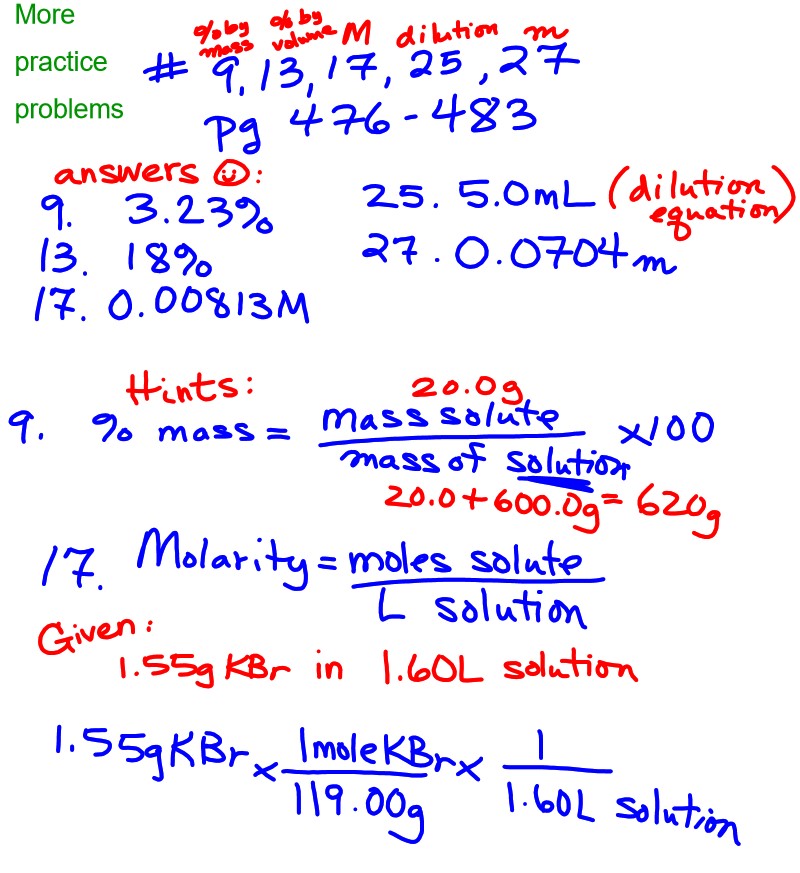 More
practice
problems
% by mass % by volume M dilution m
# 9, 13, 17, 25, 27
pg 476-483
answers ☺:
9. 3.23%
13. 18%
17. 0.00813M
25. 5.0mL (dilution equation)
27. 0.0704m
Hints:
20.0g
9. % mass = mass solute / mass of solution x100
20.0+600.0g = 620g
17. Molarity = moles solute / L solution
Given:
1.55g KBr in 1.60L solution
1.55g KBr x 1 mole KBr / 119.00g x 1 / 1.60L solution